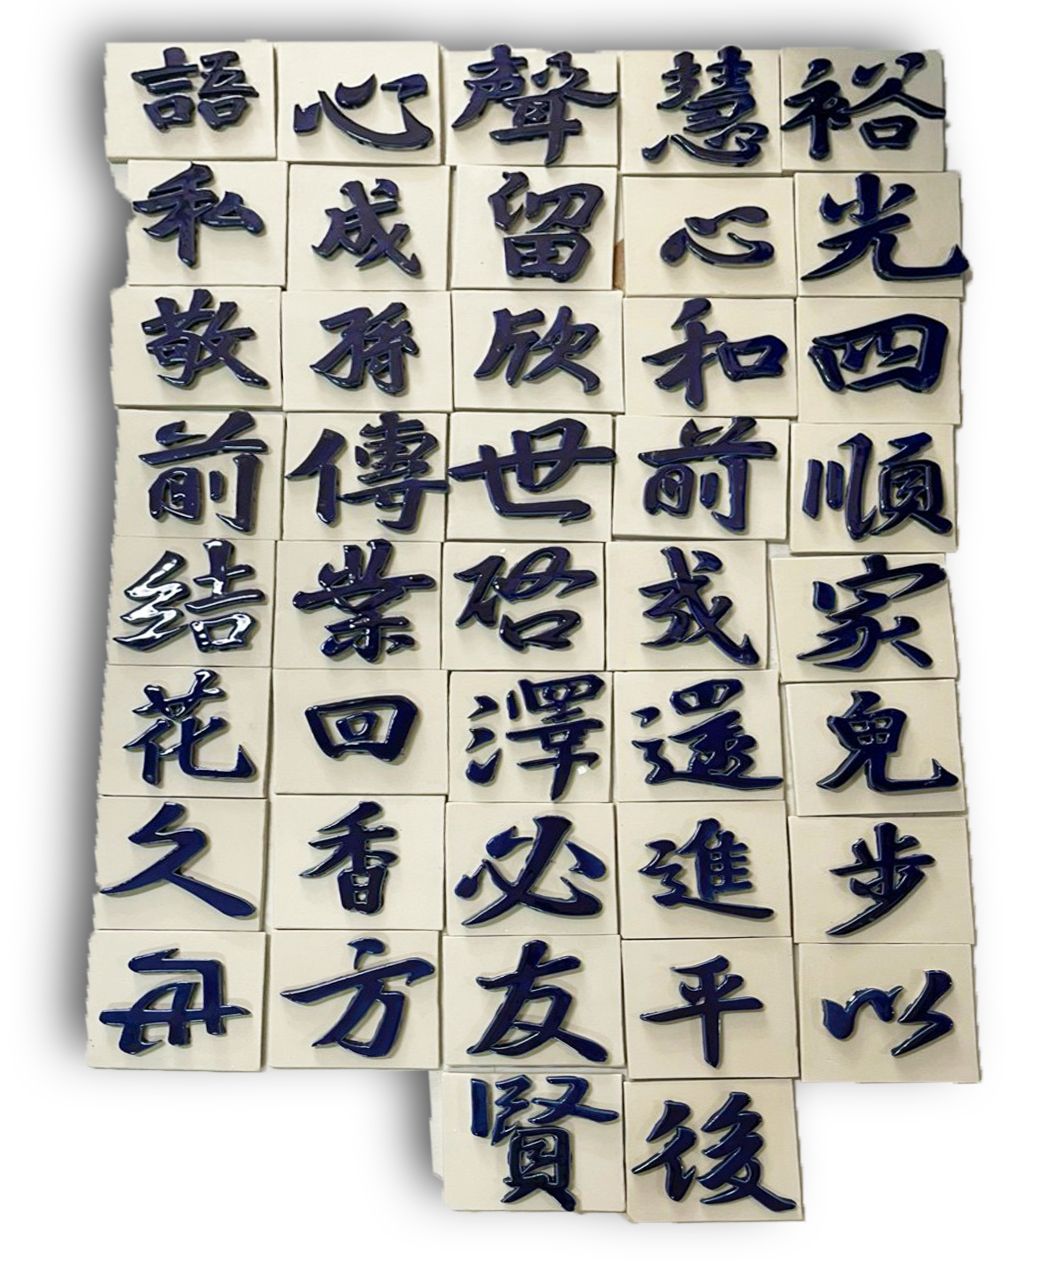 裕光四順家兒步以
慧心和前還進平後
聲留欣世啓澤必友賢
心成孫傳業回香方
語私敬前結花久毋